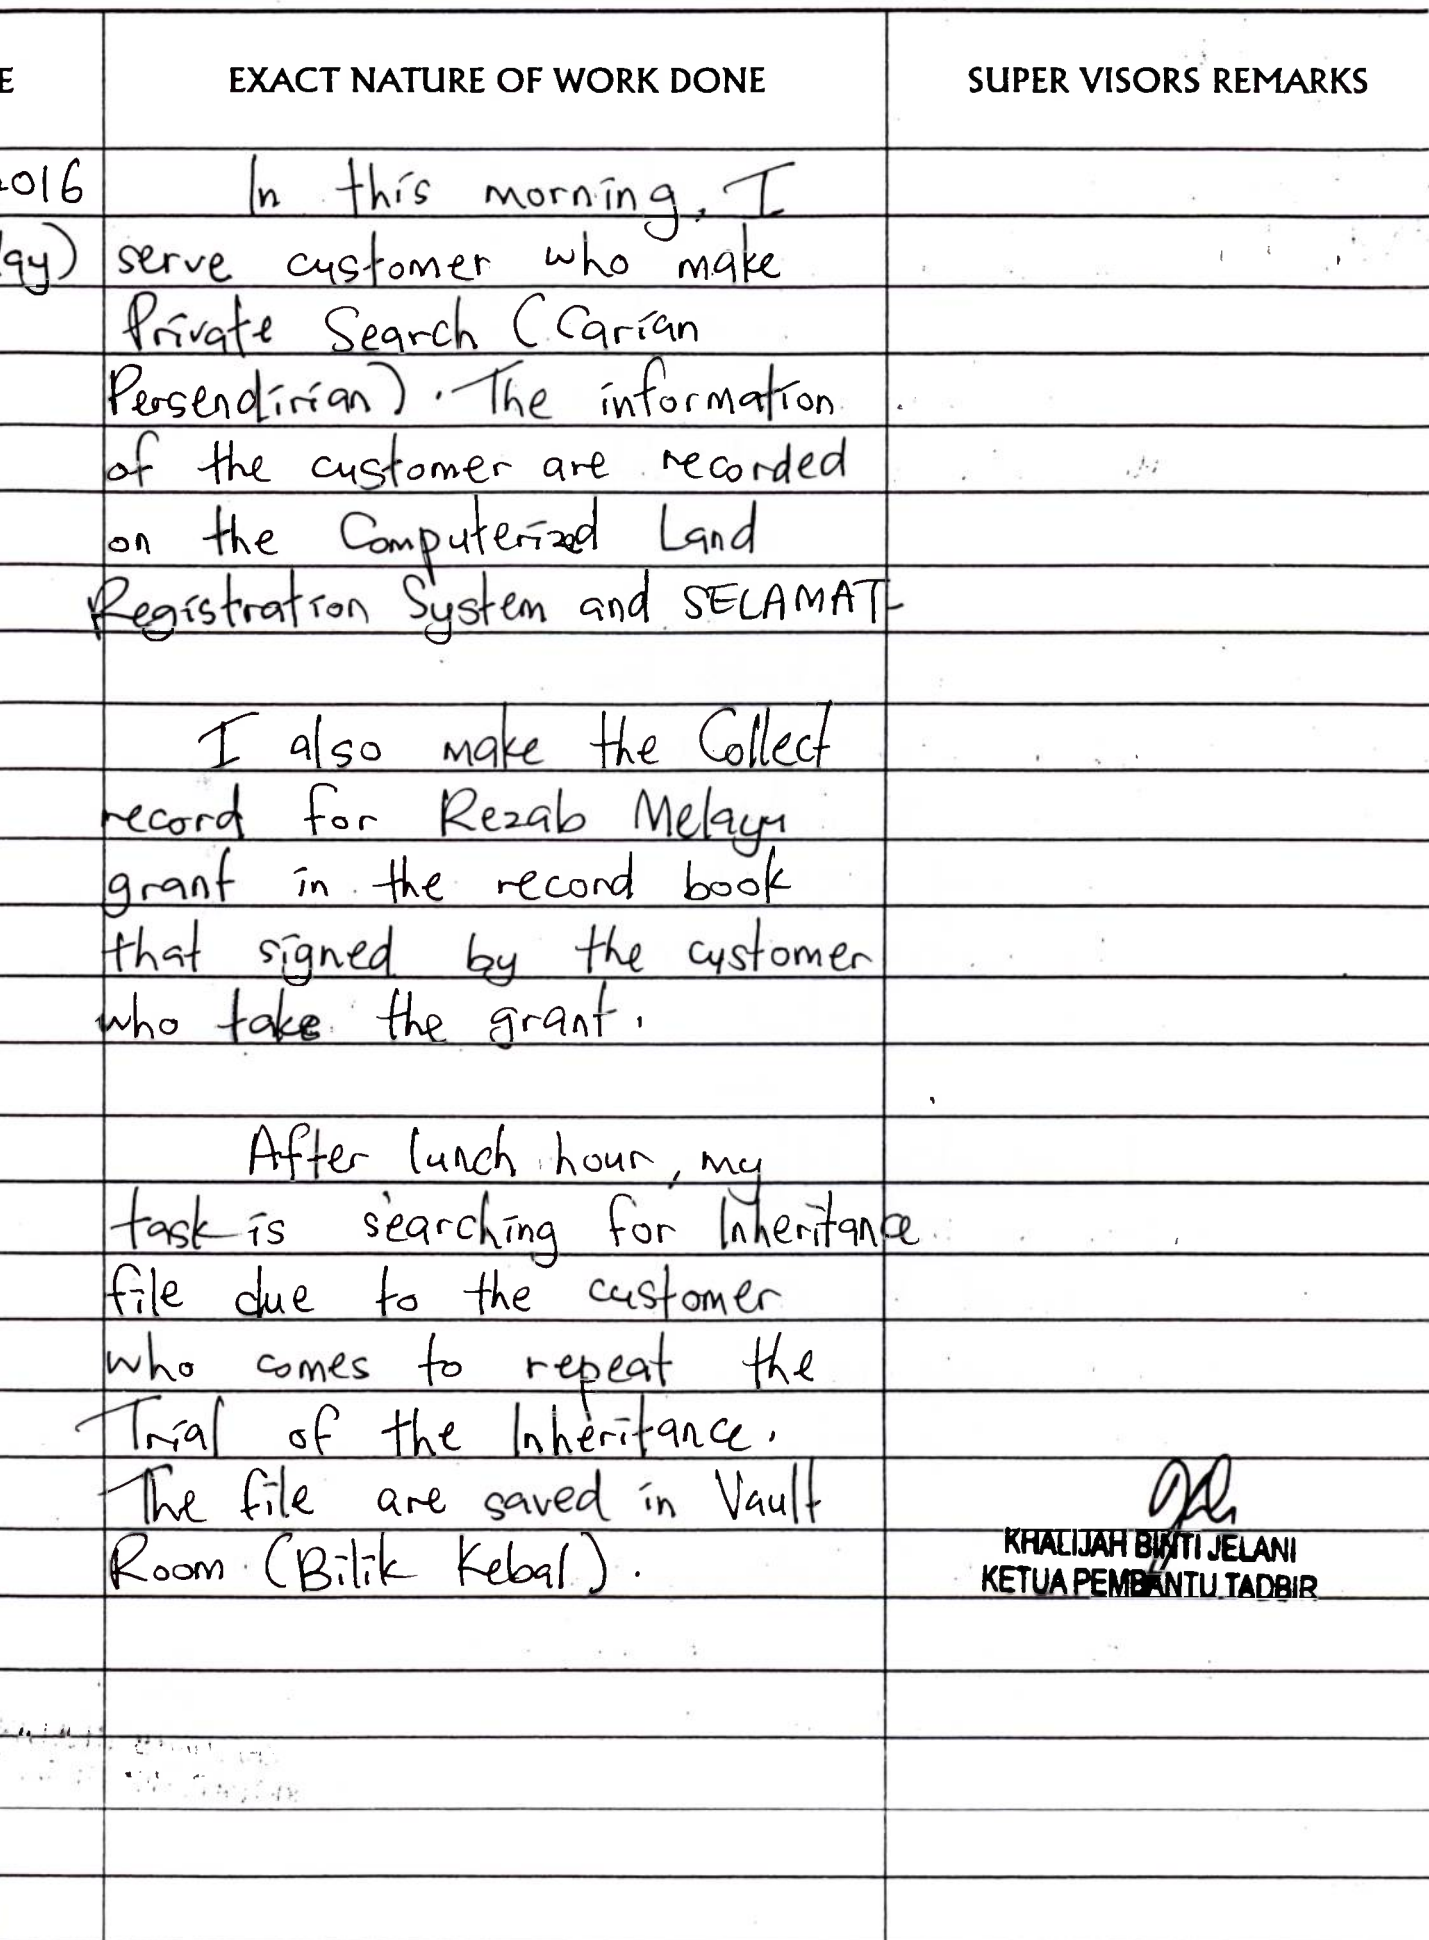 E EXACT NATURE OF WORK DONE SUPER VISORS REMARKS
2016 In this morning, I
ay) serve customer who make
Private Search (Carian
Persendirian). The information
of the customer are recorded
on the Computerized Land
Registration System and SELAMAT
I also make the Collect
record for Rezab Melayu
grant in the record book
that signed by the customer
who take the grant.
After lunch hour, my
task is searching for Inheritance
file due to the customer
who comes to repeat the
Trial of the Inheritance.
The file are saved in Vault
Room (Bilik Kebal).
KHALIJAH BINTI JELANI
KETUA PEMBANTU TADBIR